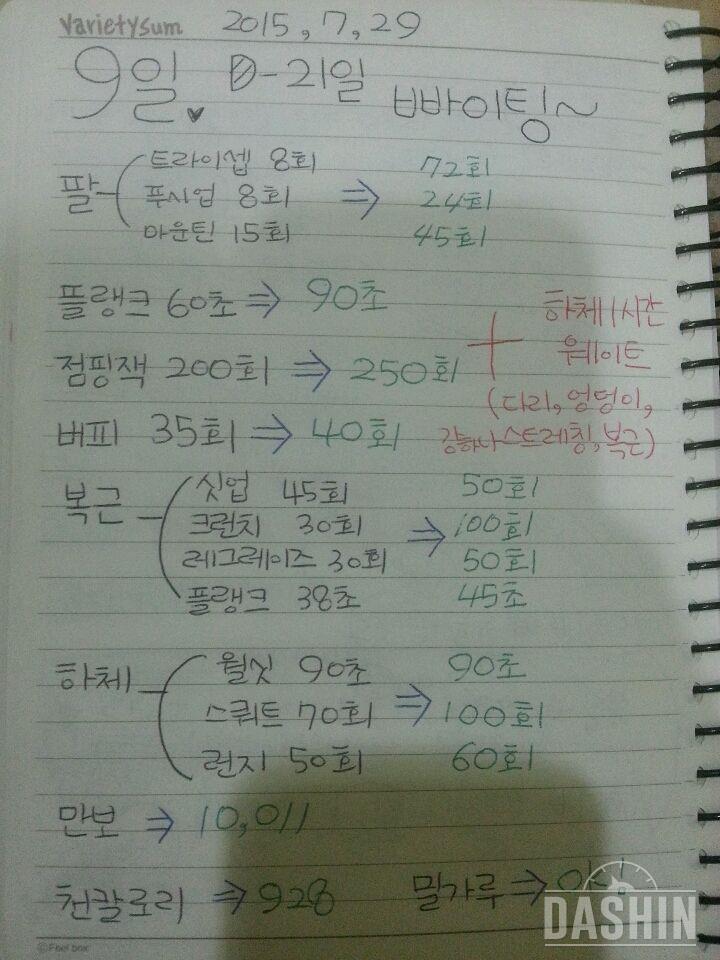 varietysum 2015, 7, 29
9일. D-21일 빠이팅~
팔 트라이셉 8회 72회
푸시업 8회 ⇒ 24회
마운틴 15회 45회
플랭크 60초 ⇒ 90초
점핑잭 200회 ⇒ 250회
버피 35회 ⇒ 40회
+ 하체 1시간
웨이트
(다리, 엉덩이,
스트레칭, 복근)
복근 싯업 45회 50회
크런치 30회 ⇒ 100회
레그레이즈 30회 50회
플랭크 38초 45초
하체 월싯 90초 90초
스쿼트 70회 ⇒ 100회
런지 50회 60회
만보 ⇒ 10,011
천칼로리 ⇒ 928 밀가루 ⇒
DASHIN
©Feel box